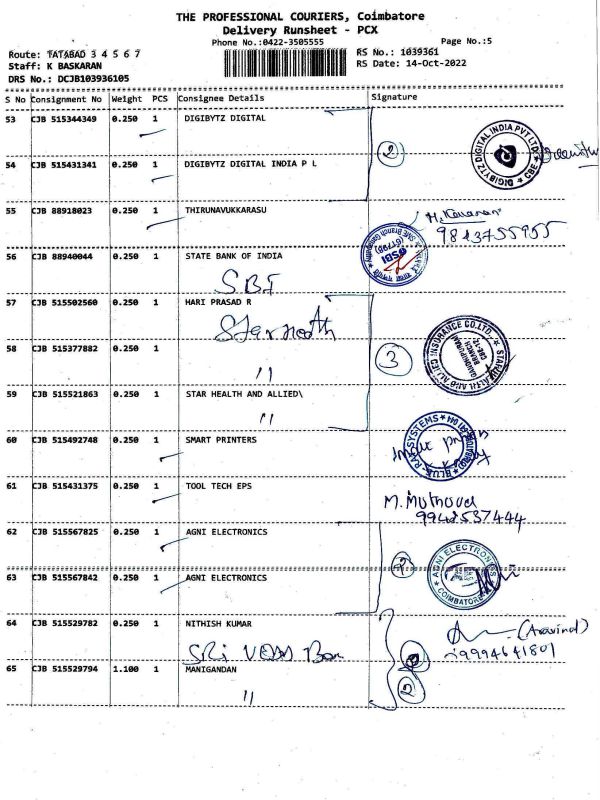 THE PROFESSIONAL COURIERS, Coimbatore
Delivery Runsheet - PCX
Phone No.:0422-3505555 Page No.:5
Route: TATABAD 3 4 5 6 7 RS No.: 1039361
Staff: K BASKARAN RS Date: 14-Oct-2022
DRS No.: DCJB103936105
S No Consignment No Weight PCS Consignee Details Signature
53 CJB 515344349 0.250 1 DIGIBYTZ DIGITAL
2 DIGIBYTZ DIGITAL INDIA PVT LTD * CBE *
54 CJB 515431341 0.250 1 DIGIBYTZ DIGITAL INDIA P L
55 CJB 88918023 0.250 1 THIRUNAVUKKARASU
56 CJB 88940044 0.250 1 STATE BANK OF INDIA
SBI
57 CJB 515502560 0.250 1 HARI PRASAD R
Star health
58 CJB 515377882 0.250 1
" 3
59 CJB 515521863 0.250 1 STAR HEALTH AND ALLIED\
"
60 CJB 515492748 0.250 1 SMART PRINTERS
61 CJB 515431375 0.250 1 TOOL TECH EPS
62 CJB 515567825 0.250 1 AGNI ELECTRONICS
2 AGNI ELECTRONICS COIMBATORE
63 CJB 515567842 0.250 1 AGNI ELECTRONICS
64 CJB 515529782 0.250 1 NITHISH KUMAR
(Aravind)
9994641801
65 CJB 515529794 1.100 1 MANIGANDAN
" 2